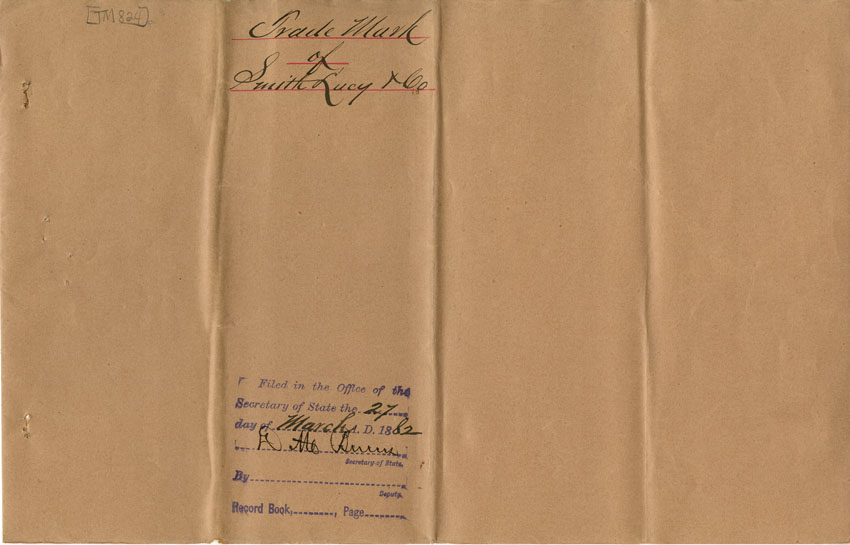 [TM 824]
Trade Mark
of
Smith Lucy & Co
Filed in the Office of the
Secretary of State the 27
day of March A. D. 1882
Secretary of State.
By
Deputy.
Record Book, Page